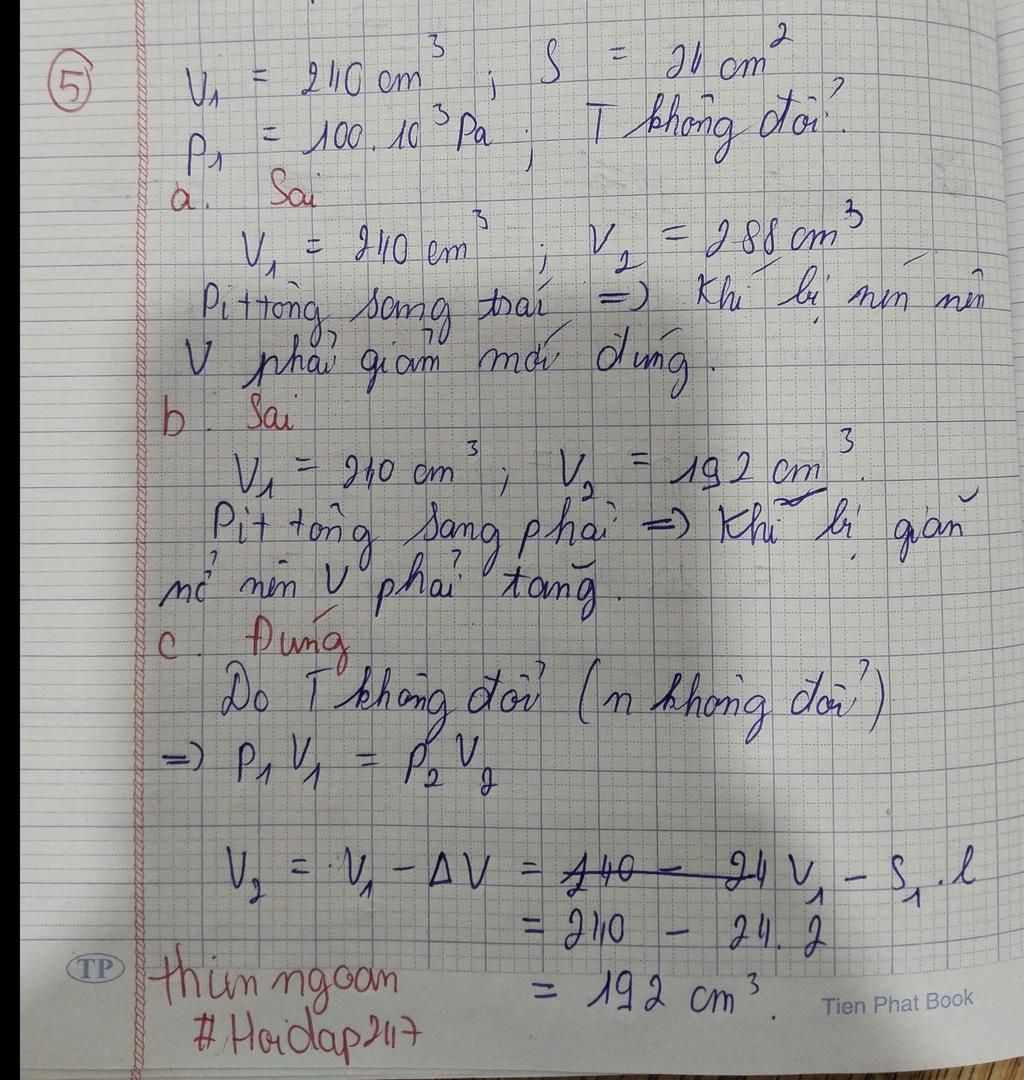 5
V₁ = 240 cm³ ; S = 24 cm²
P₁ = 100.10³ Pa ; T không đổi.
a. Sai
V₁ = 240 cm³ ; V₂ = 288 cm³
Pit tông sang trái => Khí bị nén nên
V phải giảm mới đúng.
b. Sai
V₁ = 240 cm³ ; V₂ = 192 cm³.
Pit tông sang phải => Khí bị giãn
nở nên V phải tăng.
c. Đúng
Do T không đổi (n không đổi)
=> P₁V₁ = P₂V₂
V₂ = V₁ - ΔV = 240 - 24 V₁ - S₁.l
= 240 - 24.2
= 192 cm³.
TP
thunngoan
Tien Phat Book
#Hoidap247